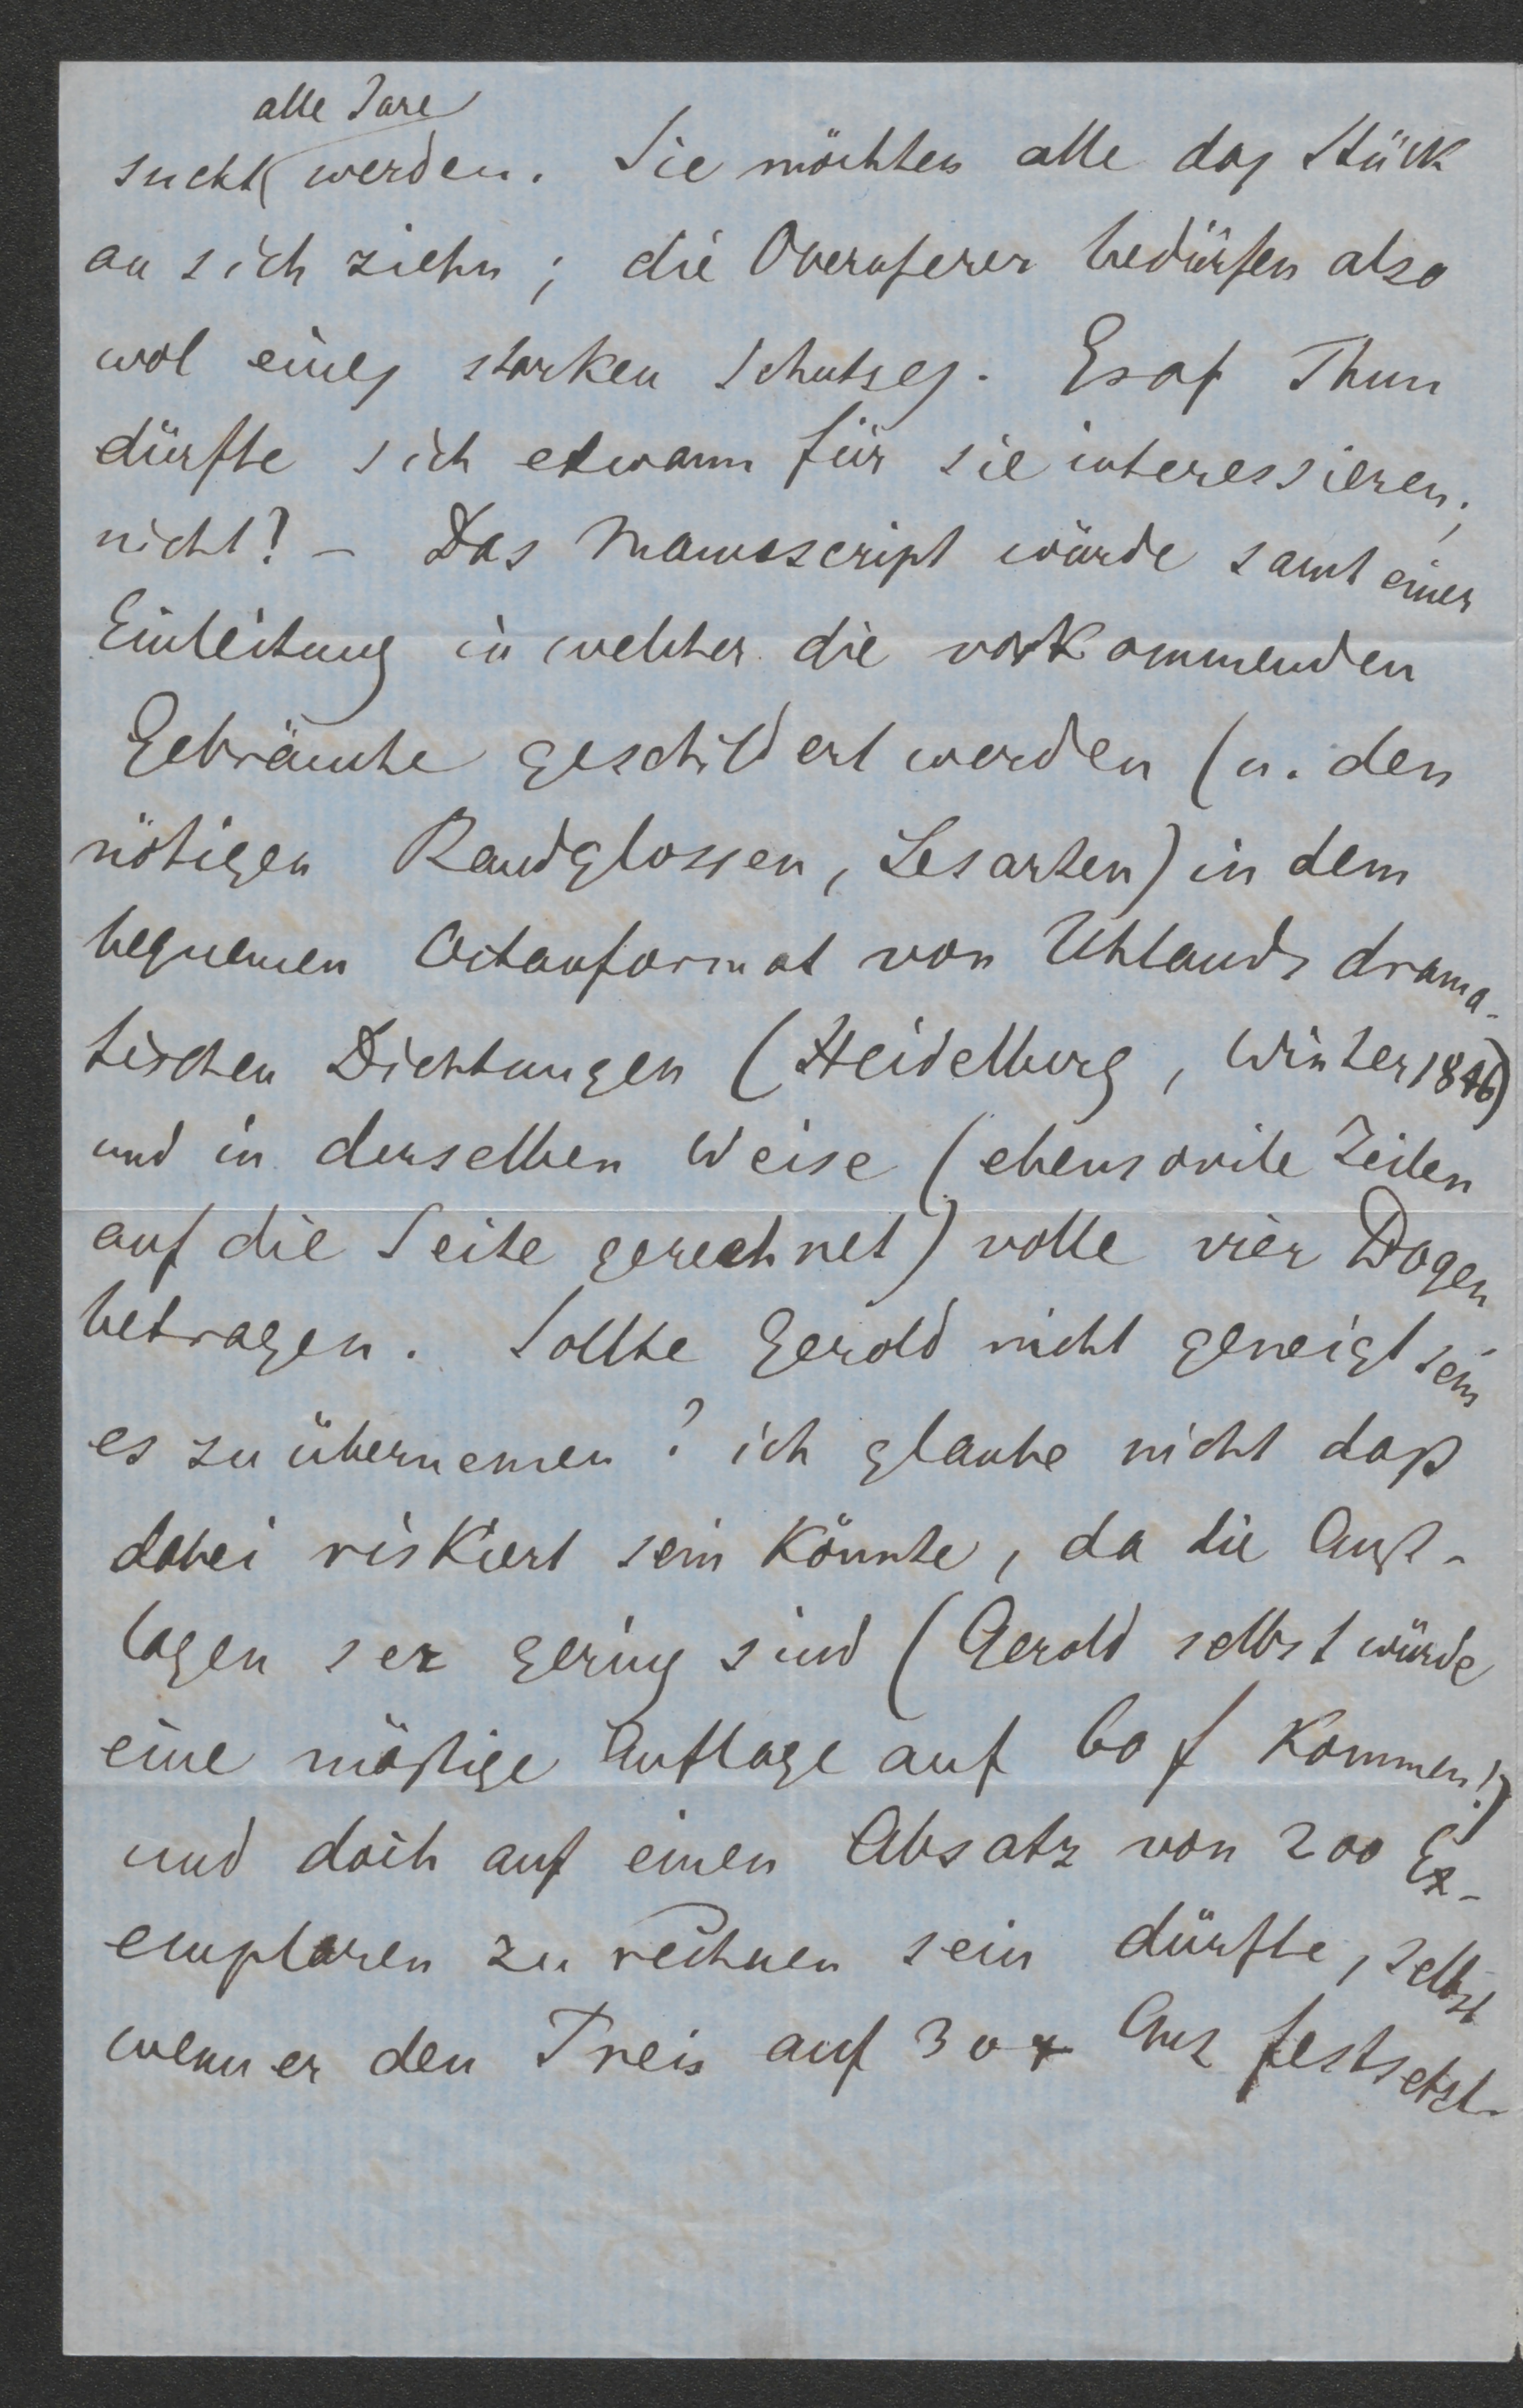 alle Jare
sucht werden. Sie möchten alle das Stück
an sich ziehn; die Oberuferer bedürfen also
wol eines starken Schutzes. Graf Thun
dürfte sich etwann für sie interessieren,
nicht? – Das Manuscript würde samt einer
Einleitung in welcher die vorkommenden
Gebräuche geschildert werden (u. den
nötigen Randglossen, Lesarten) in dem
bequemen Octavformat von Uhlands drama-
tischen Dichtungen (Heidelberg, Winter 1846)
und in derselben Weise (ebensovile Zeilen
auf die Seite gerechnet) volle vier Bogen
betragen. Sollte Gerold nicht geneigt sein
es zu übernemen? ich glaube nicht daß
dabei riskiert sein könnte, da die Auß-
lagen ser gering sind (Gerold selbst würde
eine mäßige Auflage auf 60 f kommen!)
und doch auf einen Absatz von 200 Ex-
emplaren zu rechnen sein dürfte, selbst
wenn er den Preis auf 30 festsetzt.